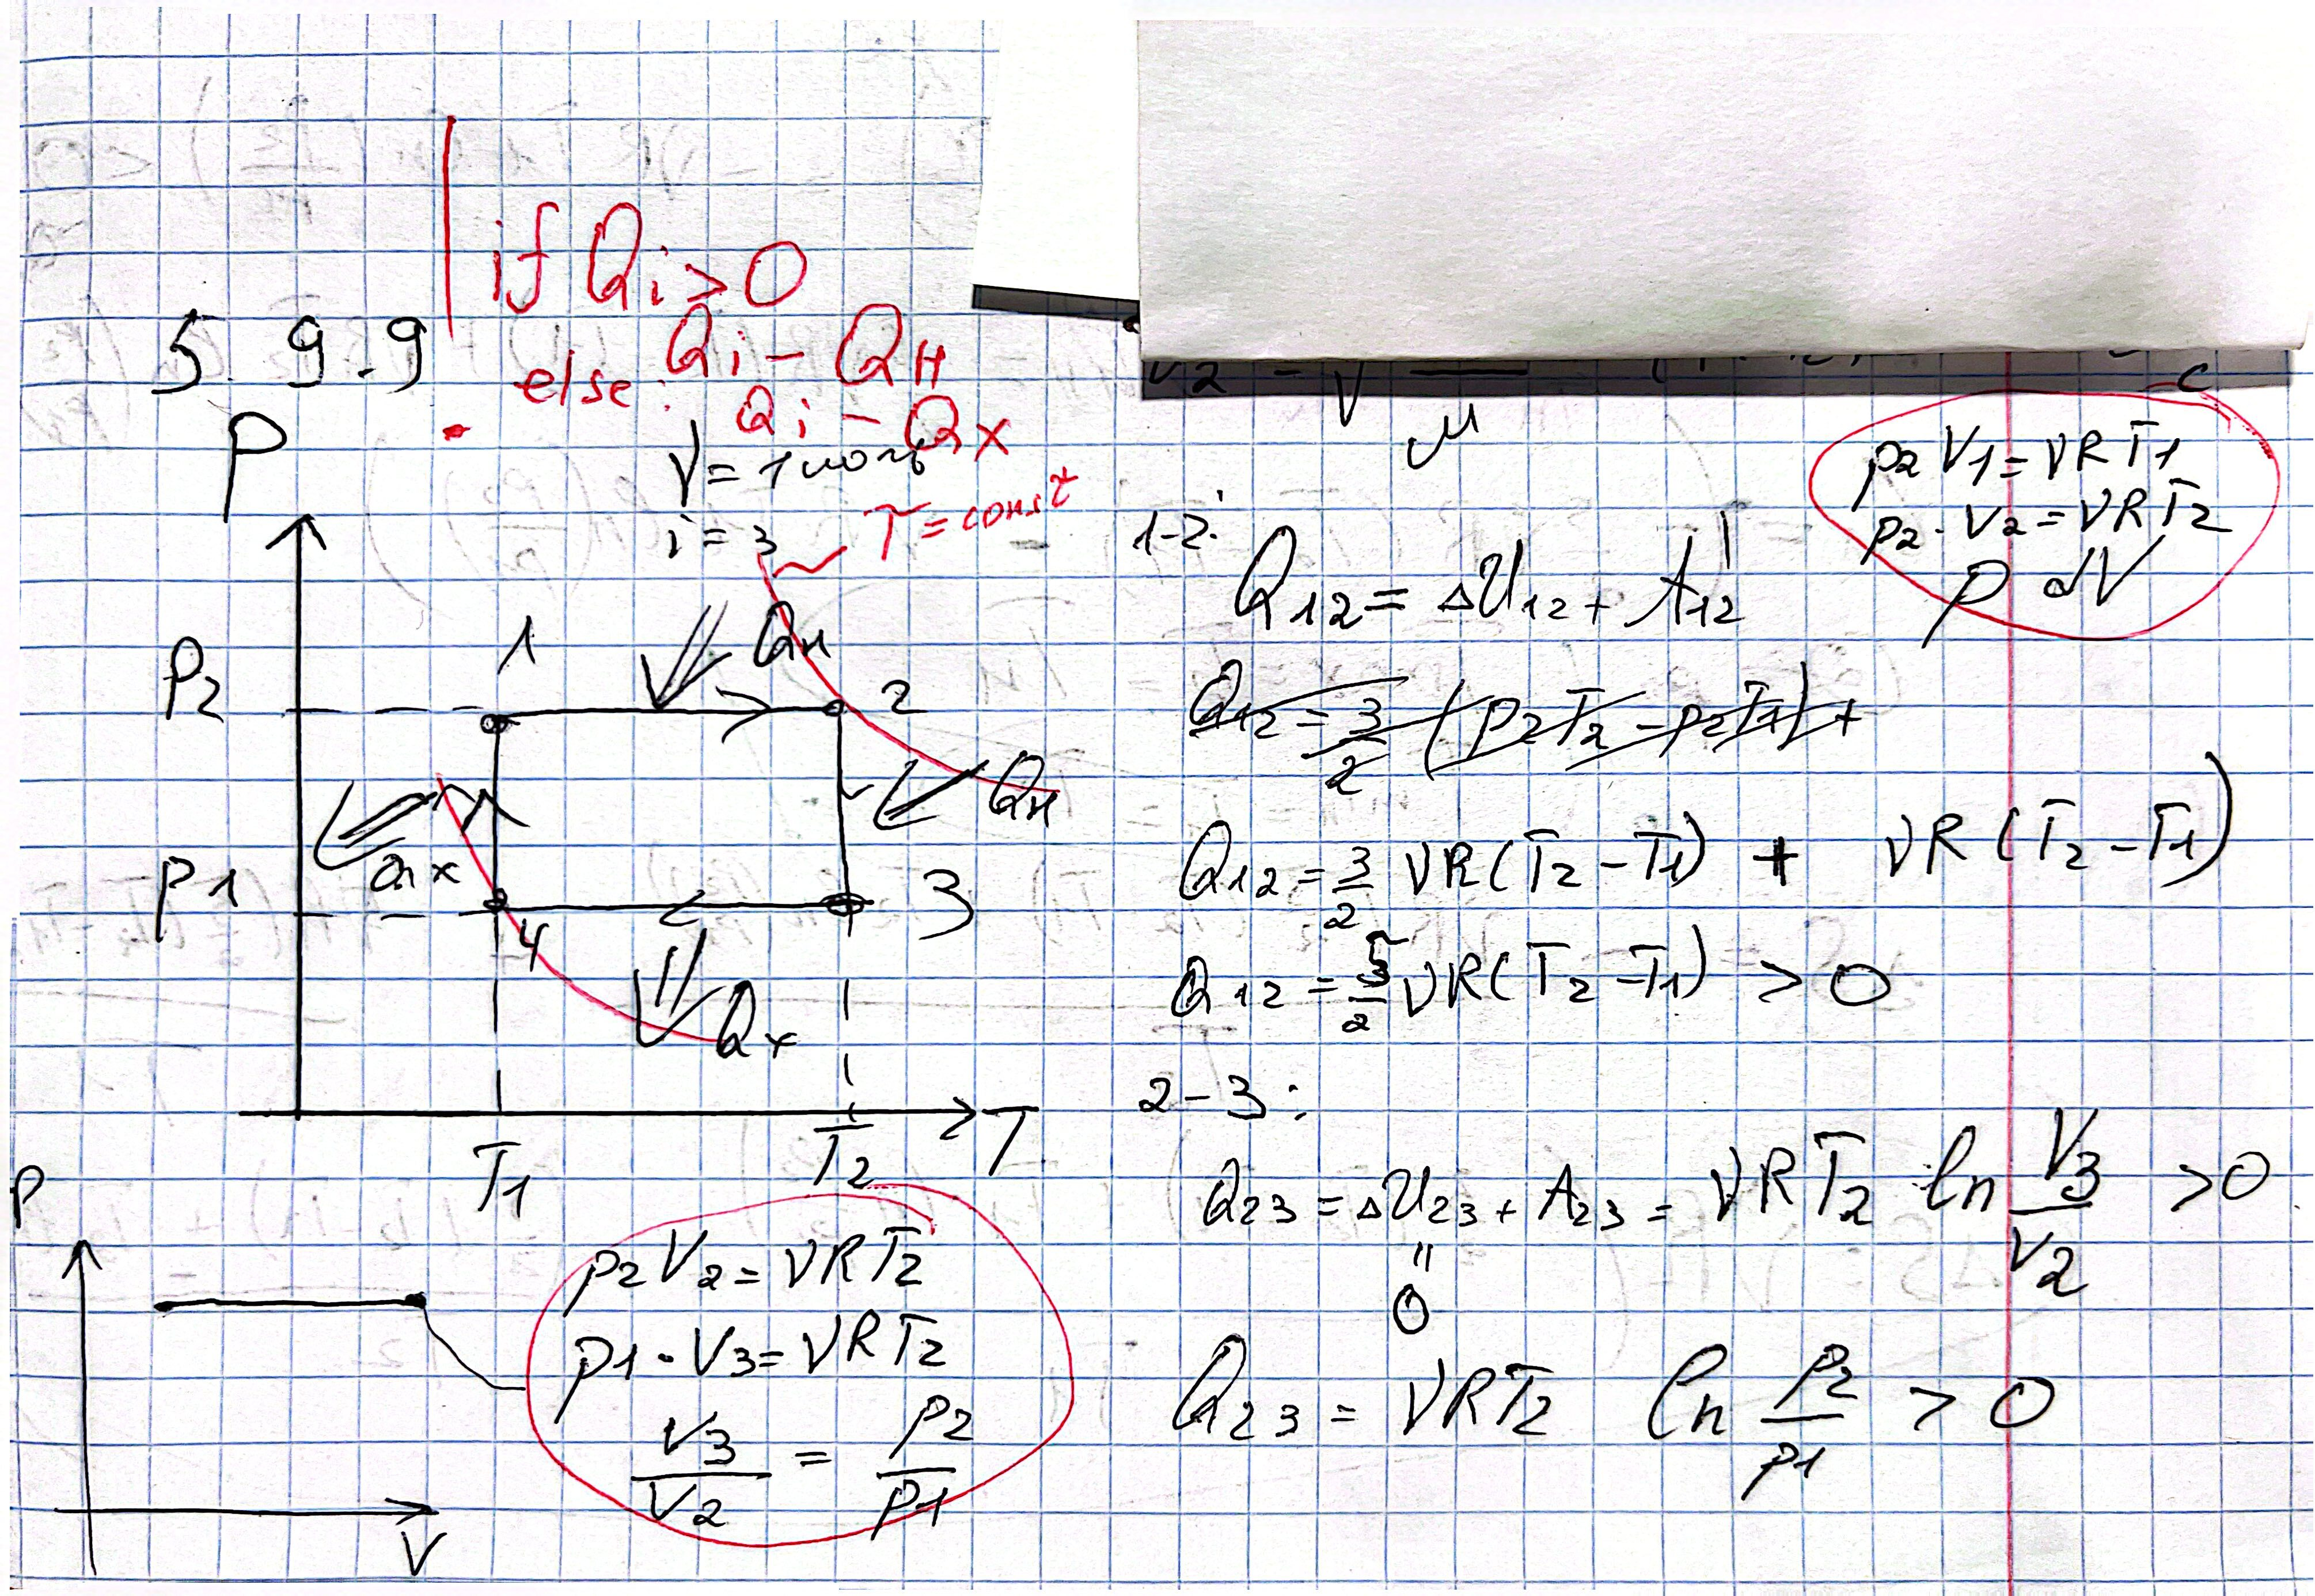 if Qi > 0
Qi – QH
else:
Qi – Qx
5.9.9
P
ν = 1 моль
i = 3
T = const
1
QH
P2
2
QH
Qx
P1
3
4
Qx
T1
T2
T
P
V
p2 V2 = νRT2
p1 · V3 = νRT2
V3/V2 = p2/p1
μ
p2 V1 = νRT1
p2 · V2 = νRT2
p dV
1-2:
Q12 = ΔU12 + A12
Q12 = 3/2 (p2T2 – p2T1) +
Q12 = 3/2 νR(T2 – T1) + νR(T2 – T1)
Q12 = 5/2 νR(T2 – T1) > 0
2-3:
Q23 = ΔU23 + A23 = νRT2 ln V3/V2 > 0
"
0
Q23 = νRT2 ln p2/p1 > 0